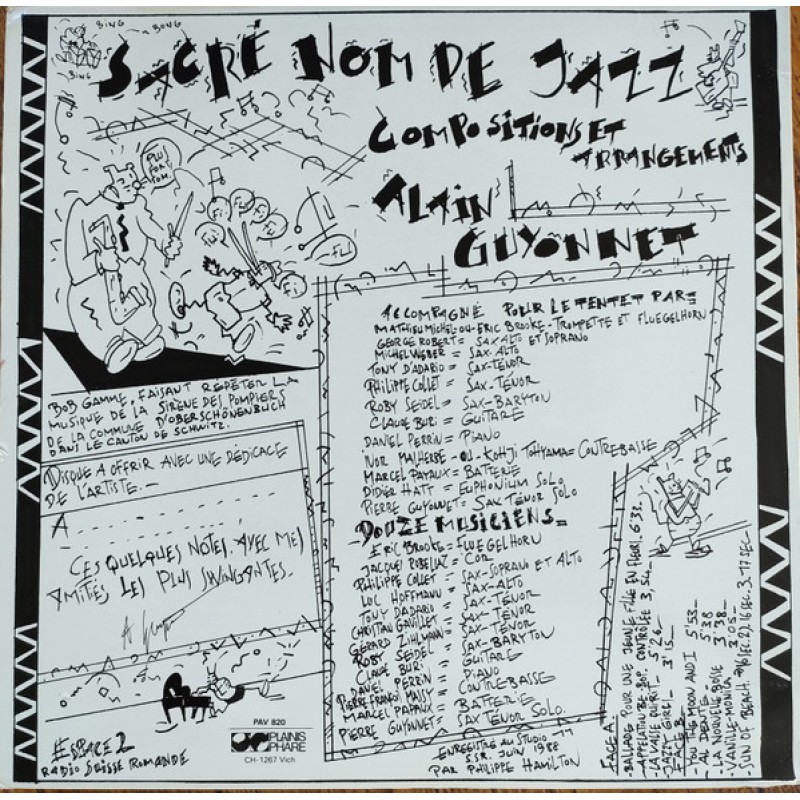 BING
BONG
BING
SACRÉ NOM DE JAZZ
COMPOSITIONS ET
ARRANGEMENTS
ALAIN
GUYONNET
PLUS
FORT
FA
FA
FA
FA
ACCOMPAGNÉ POUR LE TENTET PAR=
MATHIEU MICHEL-OU-ERIC BROOKE-TROMPETTE ET FLUEGELHORN
GEORGE ROBERT= SAX ALTO ET SOPRANO
MICHEL WEBER= SAX-ALTO
TONY D'ADARIO= SAX-TÉNOR
PHILIPPE COLLET= SAX-TÉNOR
ROBY SEIDEL= SAX-BARYTON
CLAUDE BURI= GUITARE
DANIEL PERRIN= PIANO
IVOR MALHERBE-OU-KOHJI TOHYAMA= CONTREBASSE
MARCEL PAPAUX= BATTERIE
DIDIER HATT= EUPHONIUM SOLO
PIERRE GUYONNET= SAX TÉNOR SOLO
DOUZE MUSICIENS=
ERIC BROOKE= FLUEGELHORN
JACQUES ROBELLAZ= COR
PHILIPPE COLLET= SAX-SOPRANO ET ALTO
LOC HOFFMANN= SAX-ALTO
TONY DADARIO= SAX-TÉNOR
CHRISTIAN GAVILLET= SAX-TÉNOR
GÉRARD ZIHLMANN= SAX-TÉNOR
ROBY SEIDEL= SAX-BARYTON
CLAUDE BURI= GUITARE
DANIEL PERRIN= PIANO
PIERRE FRANÇOI MASSY= CONTREBASSE
MARCEL PAPAUX= BATTERIE
PIERRE GUYONNET= SAX TÉNOR SOLO.
BOB GAMME, FAISANT RÉPÉTER LA
MUSIQUE DE LA SIRÈNE DES POMPIERS
DE LA COMMUNE D'OBERSCHÖNENBUCH
DANS LE CANTON DE SCHWITZ.
DISQUE A OFFRIR AVEC UNE DÉDICACE
DE L'ARTISTE.-
A
CES QUELQUES NOTES, AVEC MES
AMITIÉS LES PLUS SWINGANTES.
ESPACE 2
RADIO SUISSE ROMANDE
PAV 820
PLAINIS
PHARE
CH-1267 Vich
ENREGISTRÉ AU STUDIO 11
S.S.R. JUIN 1988
PAR PHILIPPE HAMILTON
FACE A:
-BALLADE POUR UNE JEUNE FILLE EN FLEUR. 6'33.
-APPELATION BE-BOP CONTROLÉE 3,54-
-LA VALSE DU RIF. 5'26-
-JAZZY GIREL 3'15-
FACE B:
-YOU THE MOON AND I 5'53-
-AL DENTE 5'38
-LA NOUVELLE BOSSE 3'38-
-VANILLE-MONICA 3'05-
-SUN OF BEACH